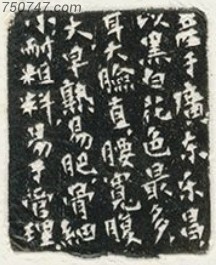 750747.com
產于廣东乐昌,
以黑白花色最多,
耳大臉直,腰寬腹
大,早熟易肥,骨細
小,耐粗料,易于管理.